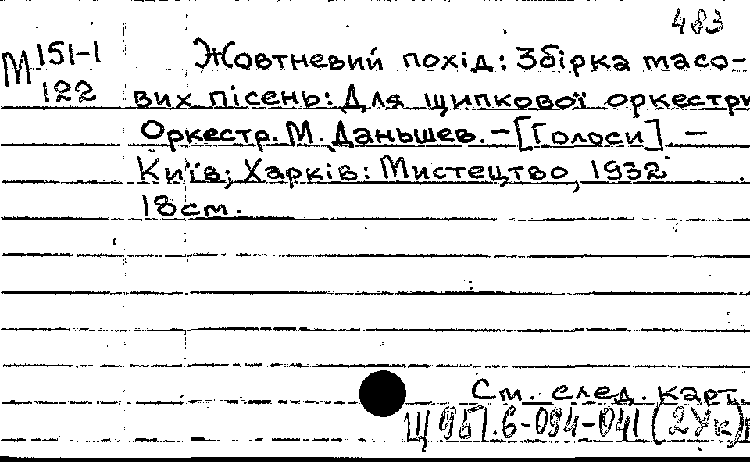 483
М 151-1
122
Жовтневий похід: Збірка масо-
вих пісень: Для щипкової оркестри
Оркестр. М. Даньшев. – [Голоси] –
Київ; Харків: Мистецтво, 1932 .
18см.
См. след. карт.
Щ 951.6-094-041 (2Ук)